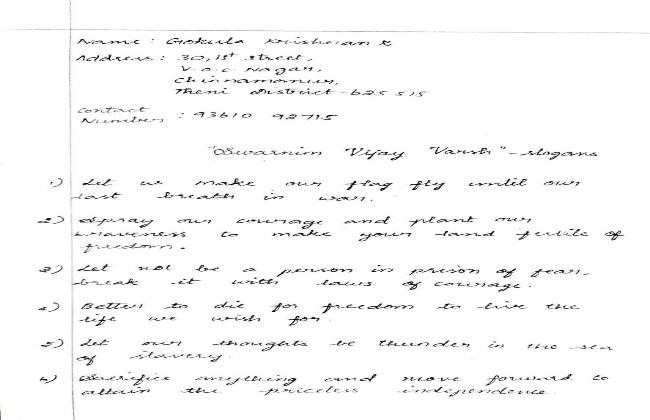 Name : Gokula Krishnan R
Address : 30, 1st street,
V.O.C Nagar,
Chinnamanur,
Theni District - 625 515
Contact
Number : 93610 92715
"Swarnim Vijay Varsh" - slogans
1) Let us make our flag fly until our
last breath in war.
2) Spray our courage and plant our
braveness to make your land fertile of
freedom.
3) Let not be a person in prison of fear,
break it with laws of courage.
4) Better to die for freedom to live the
life we wish for.
5) Let our thoughts be thunder in the sea
of slavery.
6) Sacrifice anything and move forward to
attain the priceless independence.